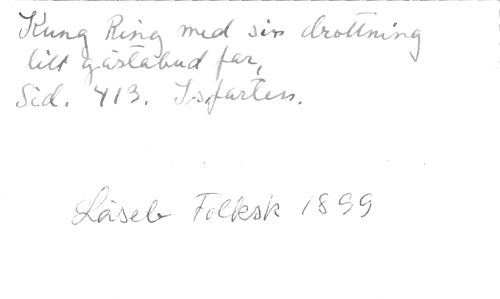 Kung Ring med sin drottning
till gästabud far,
Sid. 413. Isfarten.
Läseb Folksk 1899